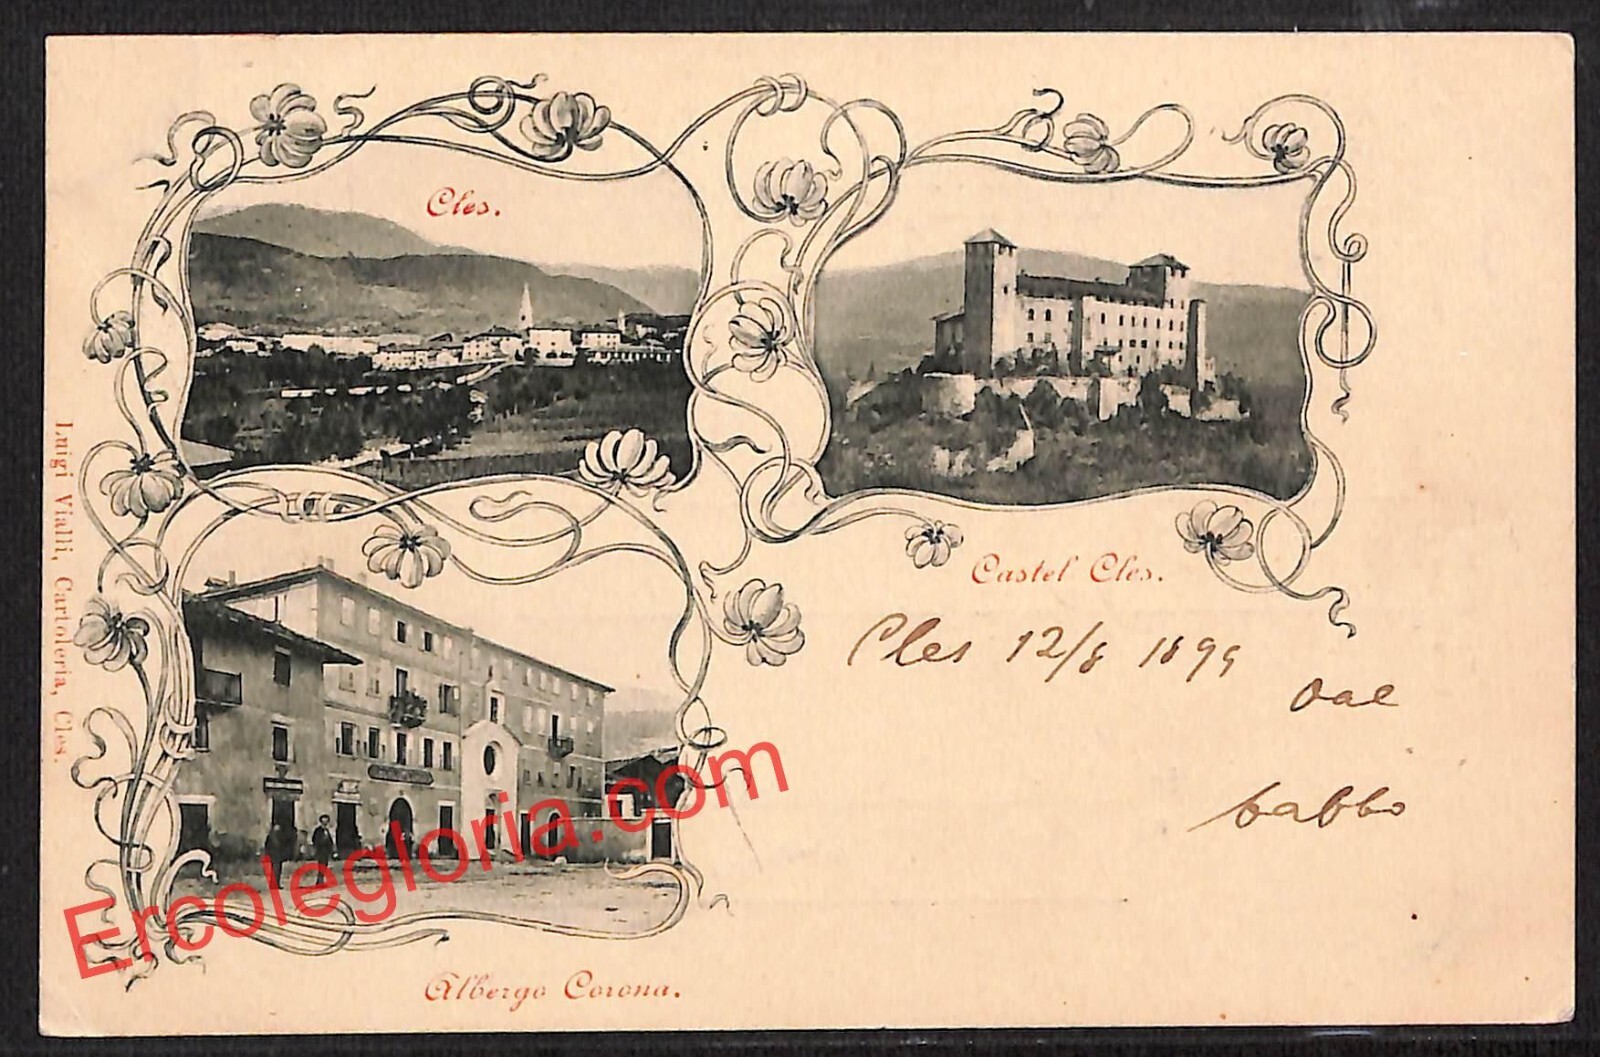 Cles.
Castel Cles.
Cles 12/8 1899
dal
babbo
Luigi Vialli, Cartoleria, Cles.
Albergo Corona.
Ercolegloria.com